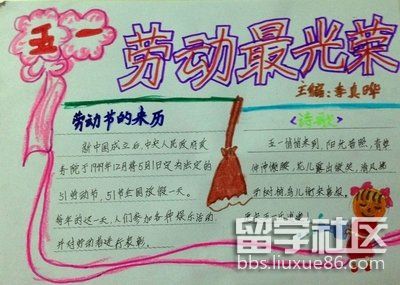 五一
劳动最光荣
主编:李真晔
劳动节的来历
新中国成立后,中央人民政府政
务院于1949年12月将5月1日定为法定的
51劳动节,51节全国放假一天。
每年的这一天,人们参加各种娱乐活动,
并对劳动者进行表彰。
《诗歌》
五一悄悄来到,阳光普照,有草
伸伸懒腰,花儿露出微笑,清风
留学社区
bbs.liuxue86.com